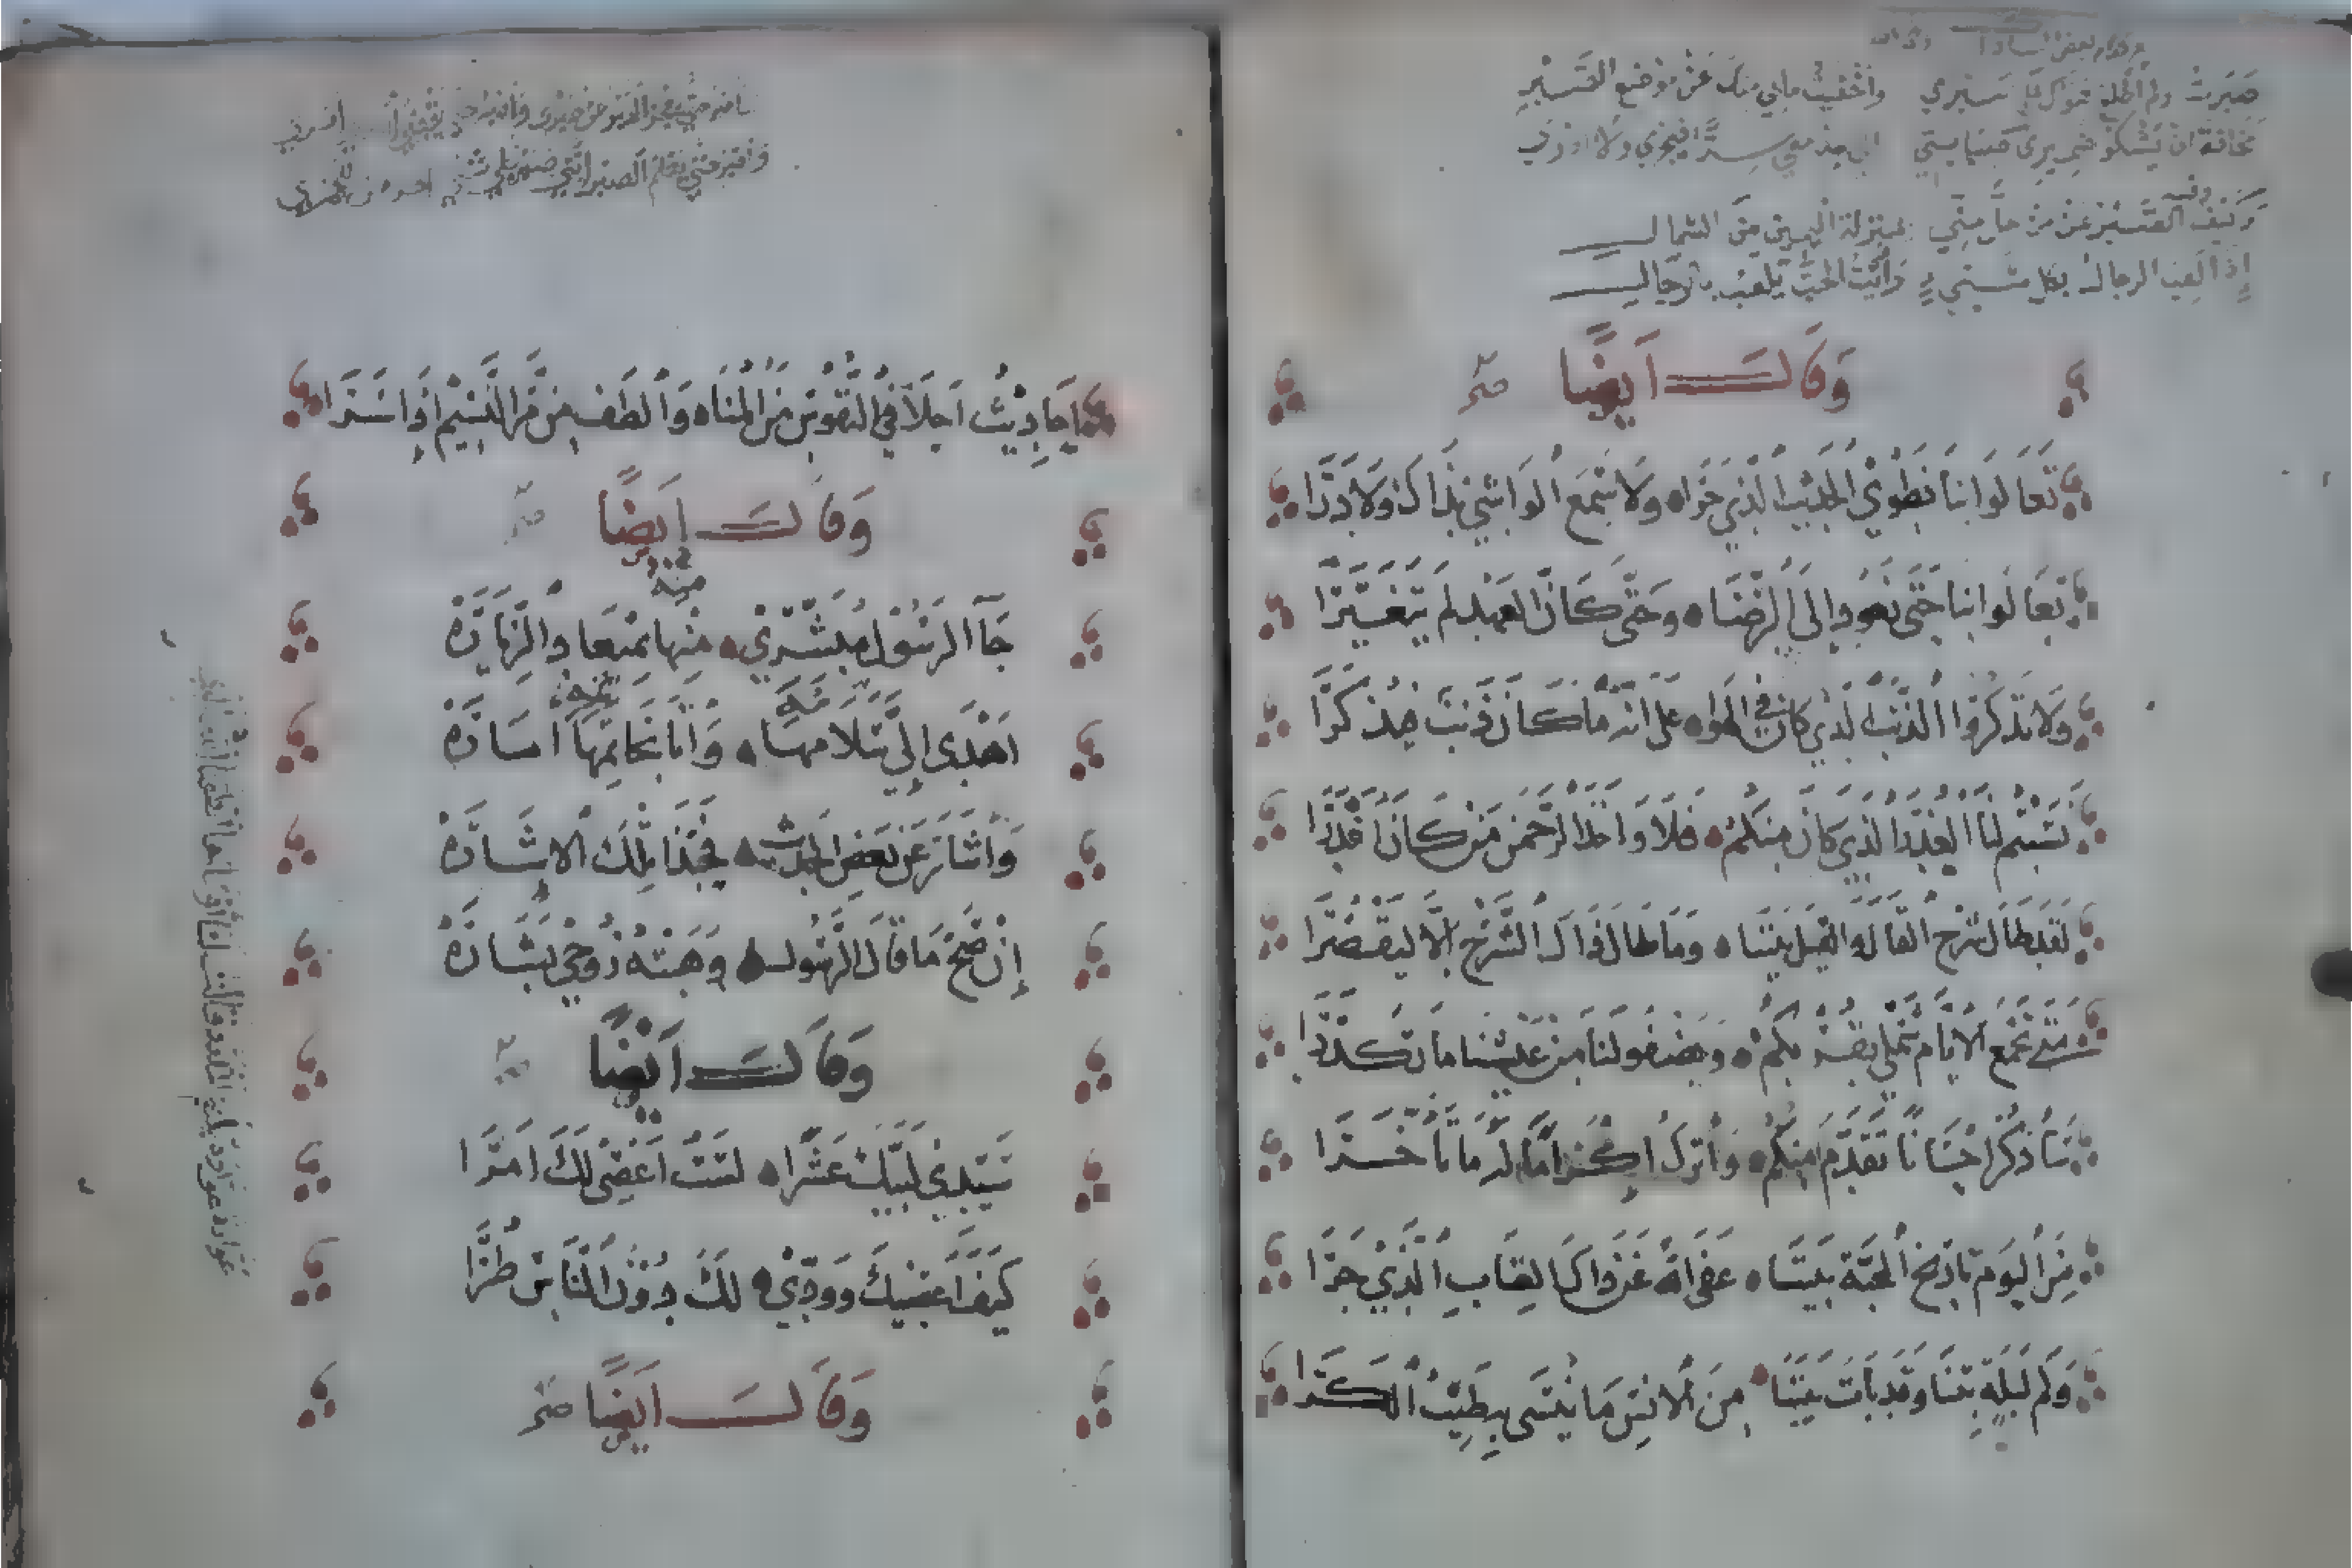 صبرت ولم أطلع هواك على صبري وأخفيت ما بي منك عن موضع الصبر
مخافة ان يشكو ضميري صبابتي إلى دمعتي سرا فيجري ولا ادري
وكيف الصبر عن من حل مني بمنزلة اليمين من الشمال
إذا لعب الرجال بكل شيء رأيت الحب يلعب بالرجال
وَقَالَ اَيضًا
تعَالوا بنا نطوي الحديث الذي جرا ولا سمع الواشي بذاك ولا درا
تعَالوا بنا حتى نعود إلى الرضا وحتى كان العهد لم يتغيرا
ولا تذكروا الذنب الذي كان في الهوا على انه ما كان ذنب فيذكرا
نسبتم لنا الغدر الذي كان منكم فلا واخذ الرحمن من كان اغدرا
لقد طال شرح القال والقيل بيننا وما طال ذاك الشرح إلا ليقصرا
متى تجمع الايام شملي بقربكم ويصفو لنا من عيشنا ما تكدرا
سأذكر احسانا تقدم منكم واترك اكراما له ما تاخرا
من اليوم تاريخ المحبة بيننا عفى الله عن ذاك العتاب الذي جرا
وكم ليلة بتنا وقد بات بيننا من الانس ما ينسى به طيب الكرا
احاديث احلا في النفوس من المنا والطف من مر النسيم إذا سرا
وَقَالَ اَيضًا
جَا الرسول مبشري منها بميعاد الزيارة
اهدى إلي سلامها وأتا بخاتمها امارة
واشار عن بعض الحديث فحبذا تلك الاشارة
إن صح ما قال الرسول وهبته روحي بشارة
وَقَالَ اَيضًا
سيدي لبيك عشرا لست اعصى لك امرا
كيف اعصيك وودي لك دون الناس طرا
وَقَالَ اَيضًا